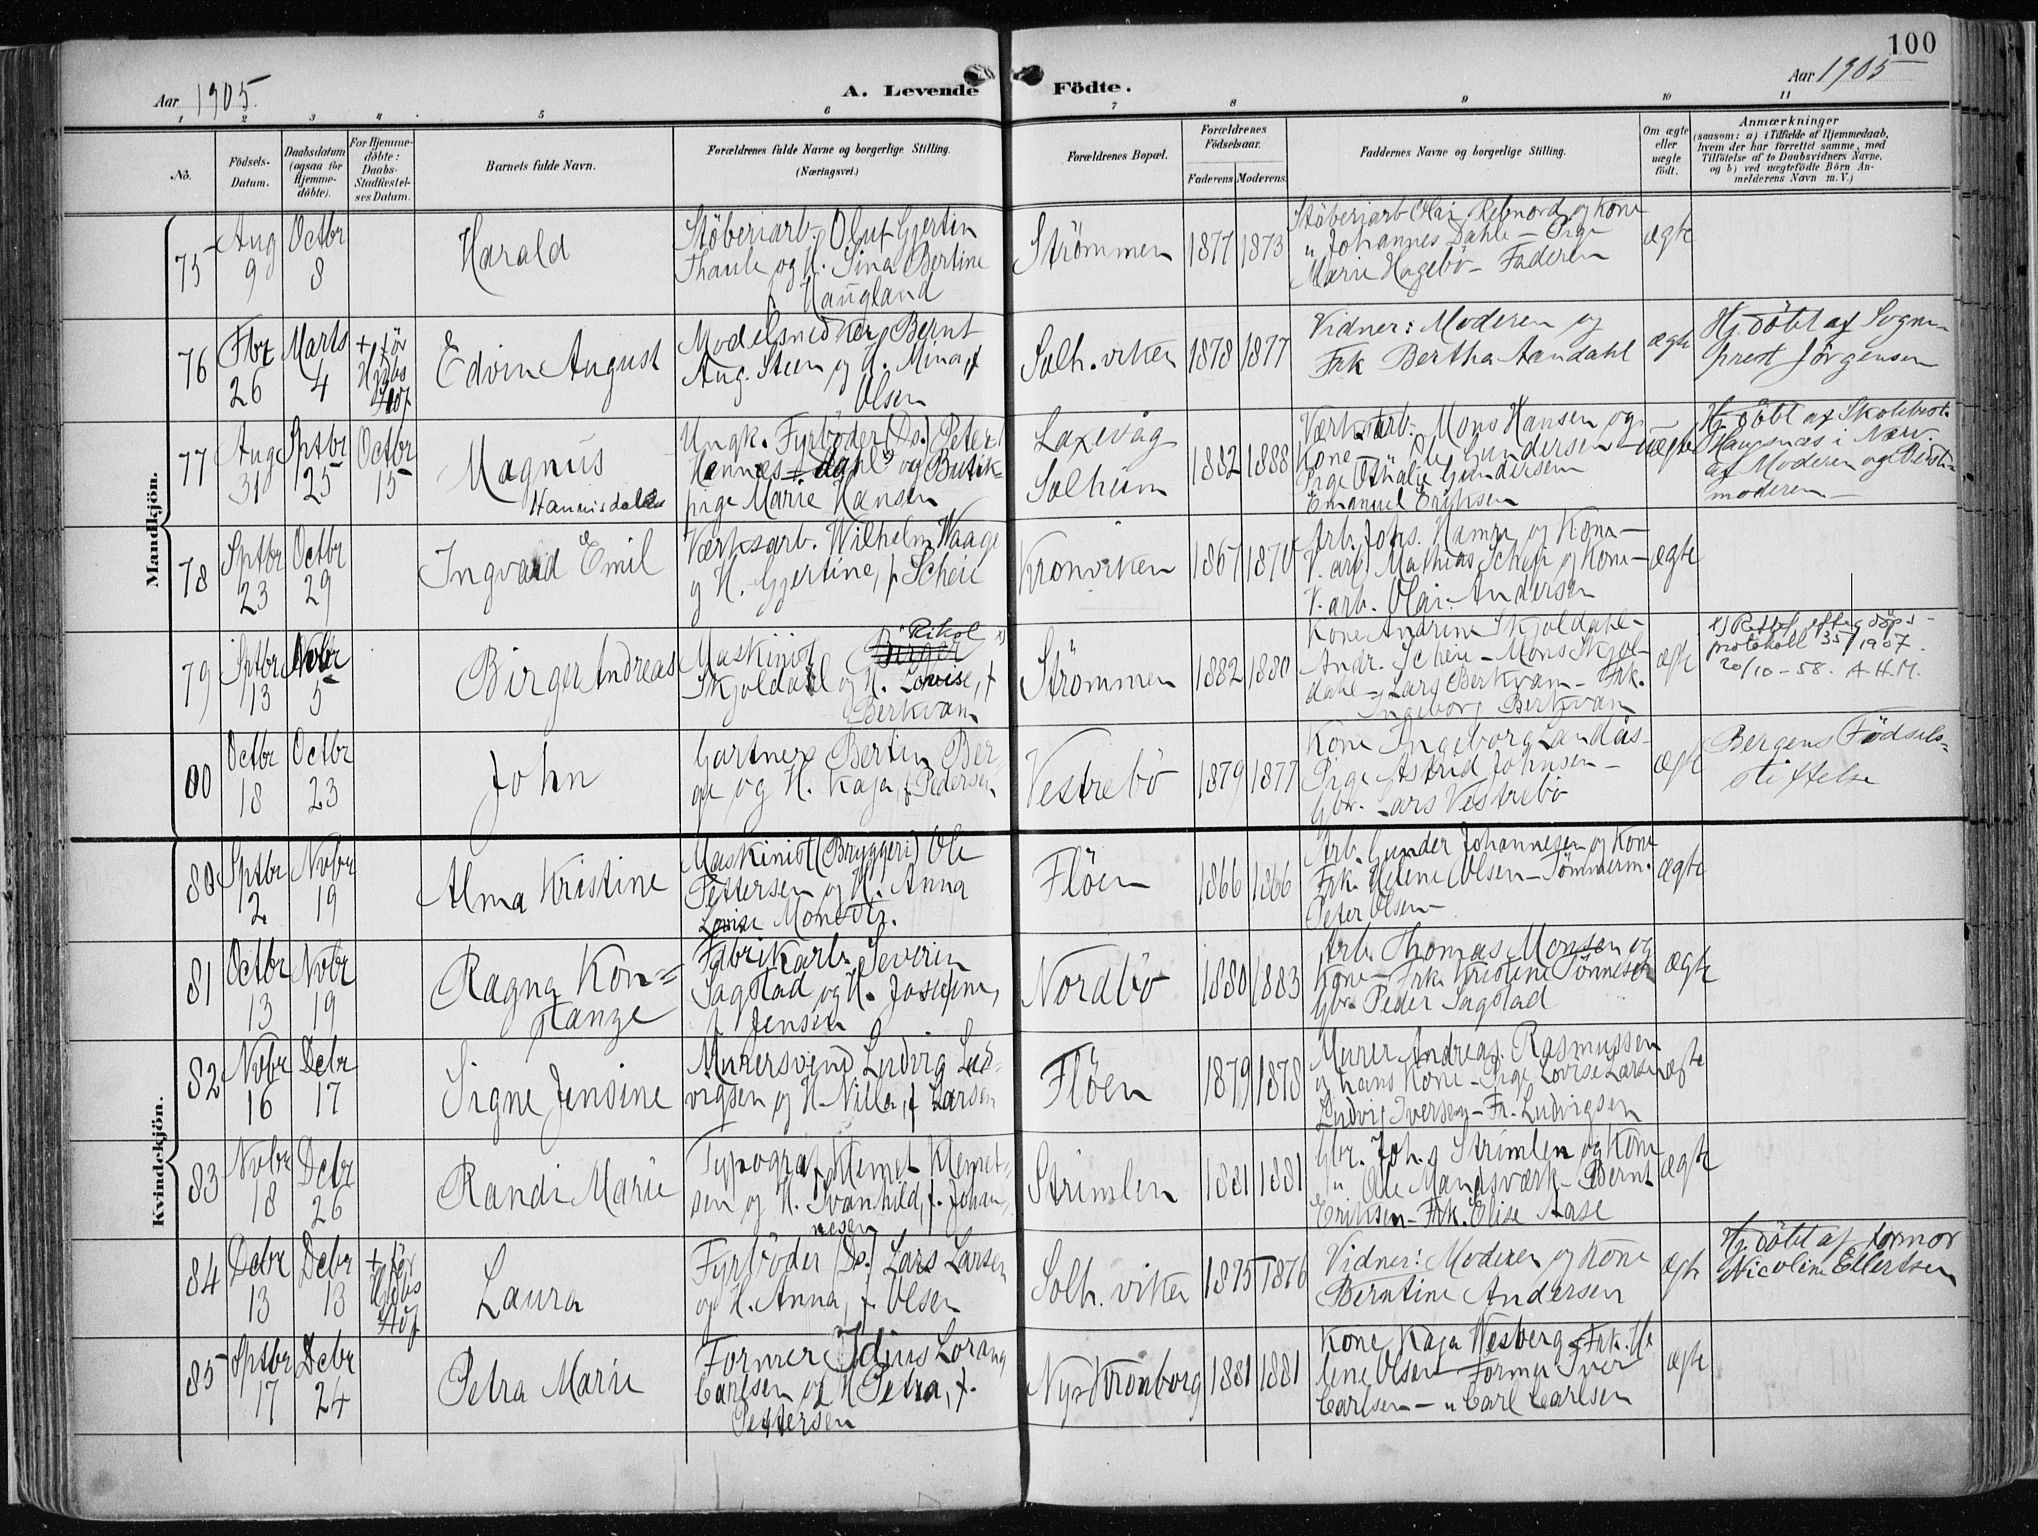 100
Aar 1905.
A. Levende Födte.
Aar 1905
1 2 3 4 5 6 7 8 9 10 11
No.
Födsels-
Datum.
Daabsdatum
(ogsaa for
Hjemme-
döbte).
For Hjemme-
döbte:
Daabs-
Stadfæstel-
ses Datum.
Barnets fulde Navn.
Forældrenes fulde Navne og borgerlige Stilling.
(Næringsvei.)
Forældrenes Bopæl.
Forældrenes
Födselsaar.
Faderens Moderens
Faddernes Navne og borgerlige Stilling.
Om ægte
eller
uægte
födt.
Anmærkninger
(saasom: a) i Tilfælde af Hjemmedaab,
hvem der har forrettet samme, med
Tilföielse af to Daabsvidners Navne,
og b) ved uægtefödte Börn An-
melderens Navn m. V.)
Mandkjön.
75
Aug
9
Octbr
8
Harald
Støberiarb. Oluf Gjertin
Thaule og H. Sina Bertine
f. Haugland
Strömmen
1877
1873
Støberiarb Olai Rebnord og Kone
" Johannes Dahle - Pige
Marie Hagebö - Faderen
ægte
76
Fbr
26
Marts
4
+ för
Edvin August
Modelsnedker Bernt
Aug. Steen og H. Mina, f
Olsen
Solh.viken
1878
1877
Vidner: Moderen og
Frk Bertha Aandahl
ægte
Hj. döbt af Sogne-
prest Jörgensen
77
Aug
31
Sptbr
25
Octbr
15
Magnus
Ungk. Fyrböder (Ds.) Peter
Hannes dahl og Butik-
pige Marie Hansen
Laxevåg
Solheim
1882
1888
Værksarb. Mons Hansen og
Kone - Ole Gundersen
Pige Othalie Gundersen
Emanuel Eriksen
uægte
Hj. döbt af Skolebest.
Haugsnæs i Nærv.
af Moderen og Bedste-
moderen -
78
Sptbr
23
Octbr
29
Ingvald Emil
Værksarb. Wilhelm Waage
og H. Gjertine, f Scheie
Kronviken
1867
1870
Arb. Johs. Hamre og Kone -
V. arb. Mathias Scheie og Kone -
V. arb. Olai Andersen
ægte
79
Sptbr
13
Novbr
5
Birger Andreas
Rikol x)
Maskinist Birger
Skjoldahl og H. Lovise, f
Berkvam
Strömmen
1882
1880
Kone Andrine Skjoldahl -
Andr. Scheie - Mons Skjol-
dahl - Lars Berkvam - Frk.
Ingeborg Berkvam
ægte
x) Rettet efter döps-
protokoll 35/1907.
20/10-58. A.H.M.
80
Octbr
18
Octbr
23
John
Gartner Bertin Ber-
ge og H. Kaja, f Pedersen
Vestrebö
1879
1877
Kone Ingeborg Landås -
Pige Astrid Johnsen -
Gbr. Lars Vestrebö
ægte
Bergens Födsels-
stiftelse
Kvindekjön.
80
Sptbr
2
Novbr
19
Alma Kristine
Maskinist (Bryggeri) Ole
Pettersen og H. Anna
Lovise Monsdtr.
Flöen
1866
1866
Arb. Gunder Johannesen og Kone
Frk. Helene Olsen - Tömmerm.
Peter Olsen -
ægte
81
Octbr
13
Novbr
19
Ragna Kon-
stanze
Fabrikarb. Severin
Sagstad og H. Josefine,
f. Jensen
Nordbö
1880
1883
Arb. Thomas Monsen og
Kone - Frk. Kristine Tönnesen
Gbr. Peder Sagstad
ægte
82
Novbr
16
Dcbr
17
Signe Jensine
Murersvend Ludvig Lud-
vigsen og H. Nilla, f Larsen
Flöen
1879
1878
Murer Andreas Rasmussen
og hans Kone - Pige Lovise Larsen
Ludvig Iversen - Fr. Ludvigsen
ægte
83
Novbr
18
Dcbr
26
Randi Marie
Typograf Klemet Klemet-
sen og H. Svanhild, f. Johan-
nesen
Strimlen
1881
1881
Gbr. Johs Strimlen og Kone
" Ole Mandsværk - Bernt
Eriksen - Frk. Elise Aase
ægte
84
Dcbr
13
Dcbr
13
+ för
Laura
Fyrböder (Ds.) Lars Larsen
og H. Anna, f Olsen
Solh.viken
1875
1876
Vidner: Moderen og Kone
Berntine Andersen
ægte
Hj. döbt af Jormor
Nicoline Ellertsen
85
Sptbr
17
Dcbr
24
Petra Marie
Former Idius Lorang
Carlsen og H Petra, f.
Pettersen
Ny-Kronborg
1881
1881
Kone Kaja Wesberg - Frk. He-
lene Olsen - Former Iver
Carlsen - " Carl Carlsen
ægte